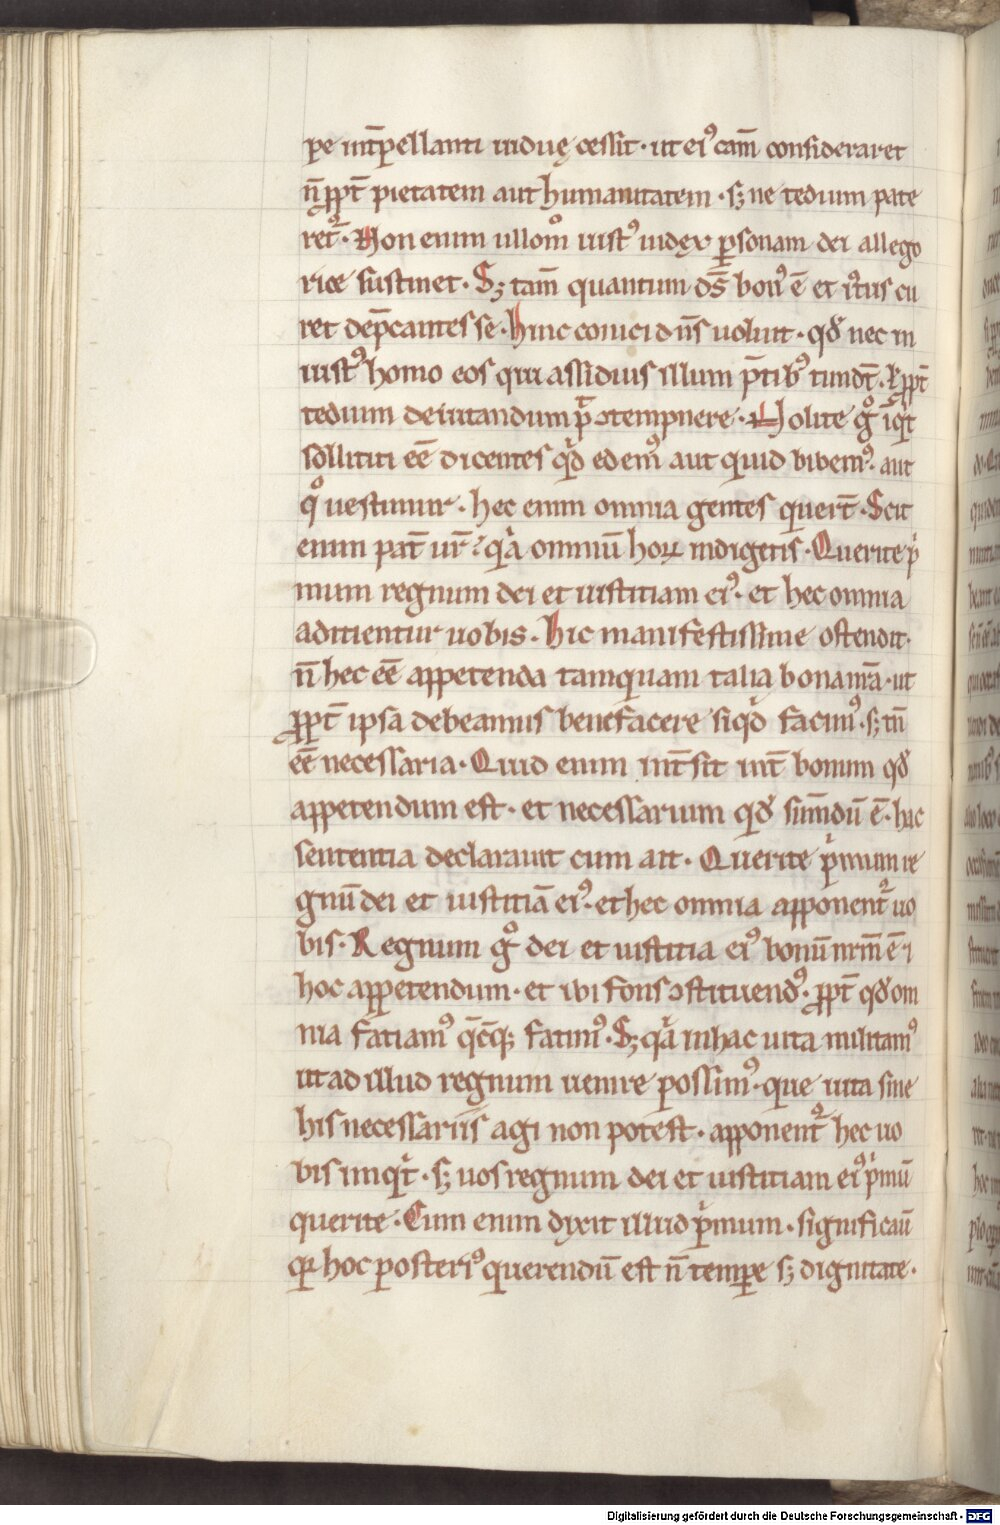 pe int̄pellanti uiduę cessit· ut eiꝰ cam̄ consideraret
n̄ ꝓpt̄ pietatem aut humanitatem· sꝫ ne tedium pate
ret᷑· Non enim ullom̊ iustꝰ iudex ꝑsonam dei allego
rice sustinet· Sꝫ tam̄ quantum ds̄ bonꝰ ē et iꝰtus cu
ret dep̄cantes se· hinc conici dn̄s uoluit· qđ nec in
iustꝰ homo eos qui assiduis illum p̄cibꝰ tundt̄· ł ꝓpt̄
tedium deuitandum pͣ ↄtempnere· Nolite gͦ iqͥt
solliciti eē dicentes qͥd edemꝰ aut quid bibemꝰ· aut
qͦ uestimur· hec enim omnia gentes quert̄· Scit
enim pat̄ ur̄· qͥa omniū hoꝝ indigetis· Querite pͥ
mum regnum dei et iustitiam eiꝰ· et hec omnia
aditientur uobis· hic manifestissime ostendit·
n̄ hec eē appetenda tamquam talia bona nr̄a· ut
ꝓpt̄ ipsa debeamus benefacere siqͥd facimꝰ· sꝫ tn̄
eē necessaria· Quid enim int̄sit int̄ bonum qđ
appetendum est· et necessarium qđ sum̄dū ē· hac
sententia declarauit cum ait· Querite pͥmum re
gnū dei et iustitiā eiꝰ· et hec omnia apponent᷑ uo
bis· Regnum gͦ dei et iustitia eiꝰ bonū nr̄m ē· ⁊
hoc appetendum· et ibi fons ↄstituendꝰ· ꝓpt̄ qđ om
nia fatiamꝰ q̄cq̄ꝫ fatimꝰ· Sꝫ qͥa in hac uita militamꝰ
ut ad illud regnum uenire possimꝰ· que uita sine
his necessariis agi non potest· apponent᷑ hec uo
bis inqͥt· sꝫ uos regnum dei et iustitiam eiꝰ pͥmū
querite· Cum enim dixit illud pͥmum· significaū
qꝛ hoc posteriꝰ querendū est n̄ tempe sꝫ dignitate·
Digitalisierung gefördert durch die Deutsche Forschungsgemeinschaft - DFG